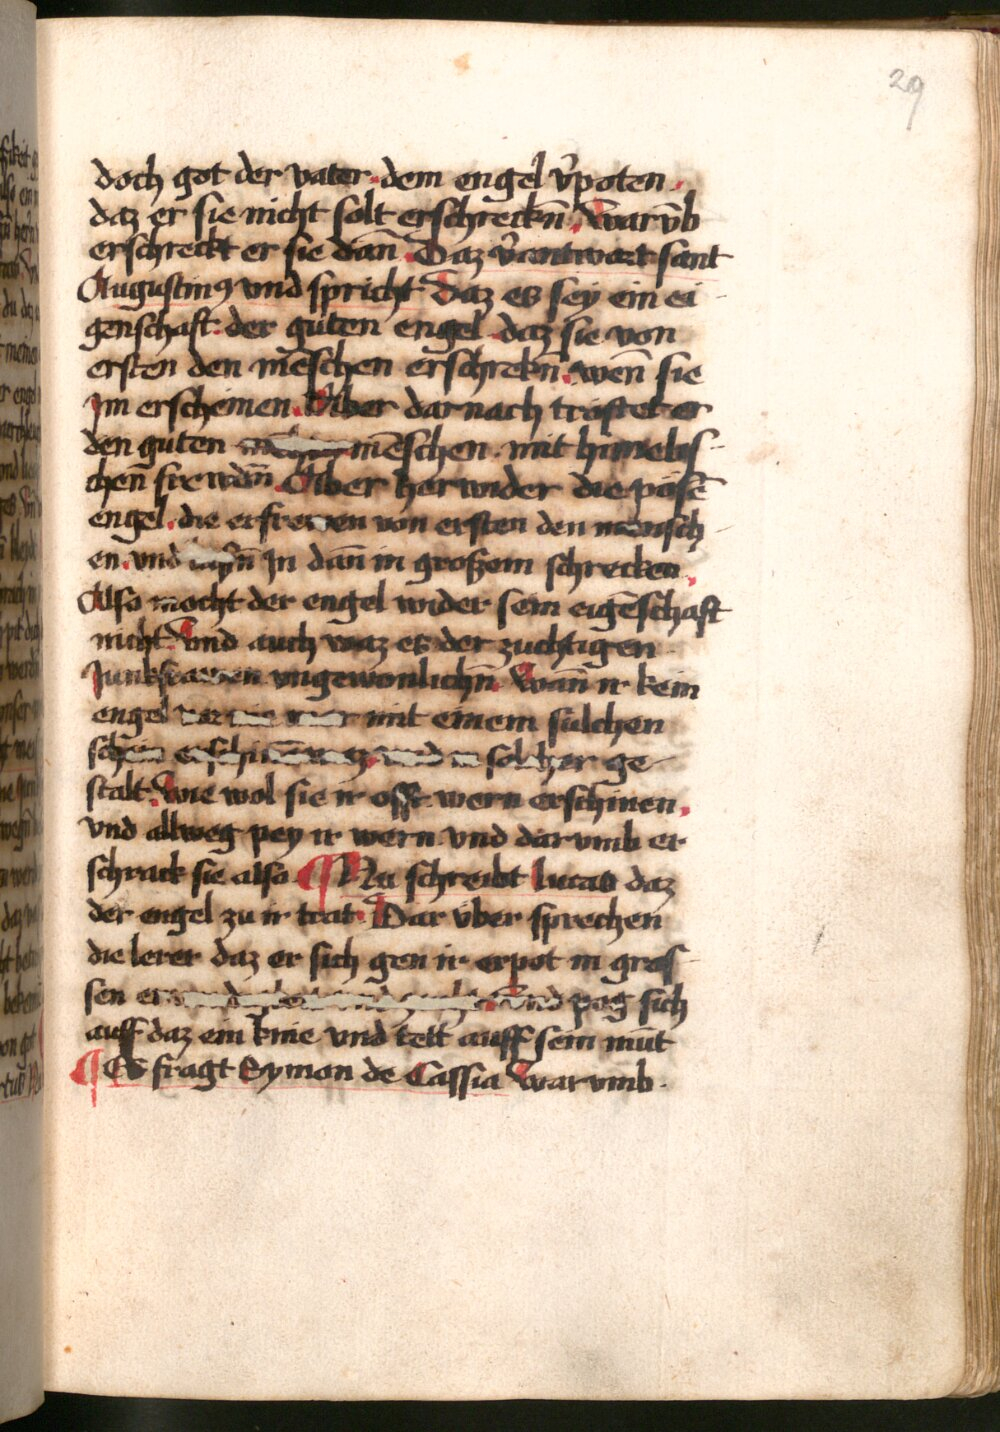 29
doch got der vater dem engel v̉poten
daz er sie nicht solt erschreckn̄. warv̄b
erschreckt er sie dan̄. Daz v̉antwort sant
Augustinꝰ vnd spricht daz es sey ein ei
genschaft der guten engel daz sie von
ersten den mēschen erschrekn̄. wen̄ sie
Im erscheinen. Aber darnach tröstet er
den guten mēschen mit himelis
chen̄ frewdn̄. Aber herwider die pösē
engel. die erfrewen von ersten den mensch
en. vnd In dan̄ in großem schrecken.
Also mocht der engel wider sein eigēschaft
nicht. Vnd auch waz es der zuchtigen
Junkfrawen vngewonlichn̄. Wan̄ ir kein
engel mit einem sulchen
schein solcher ge
stalt. wie wol sie ir offt wern erschinen.
vnd allweg pey ir wern vnd darvmb er
schrack sie also. ¶ Nu schreibt lucas daz
der engel zu ir trat. Dar vber sprechen
die lerer daz er sich gen ir erpot in gros
sen vnd pog sich
auff daz ein knie vnd tett auff sein mūt
¶ Es fragt Symon de Cassia warvmb